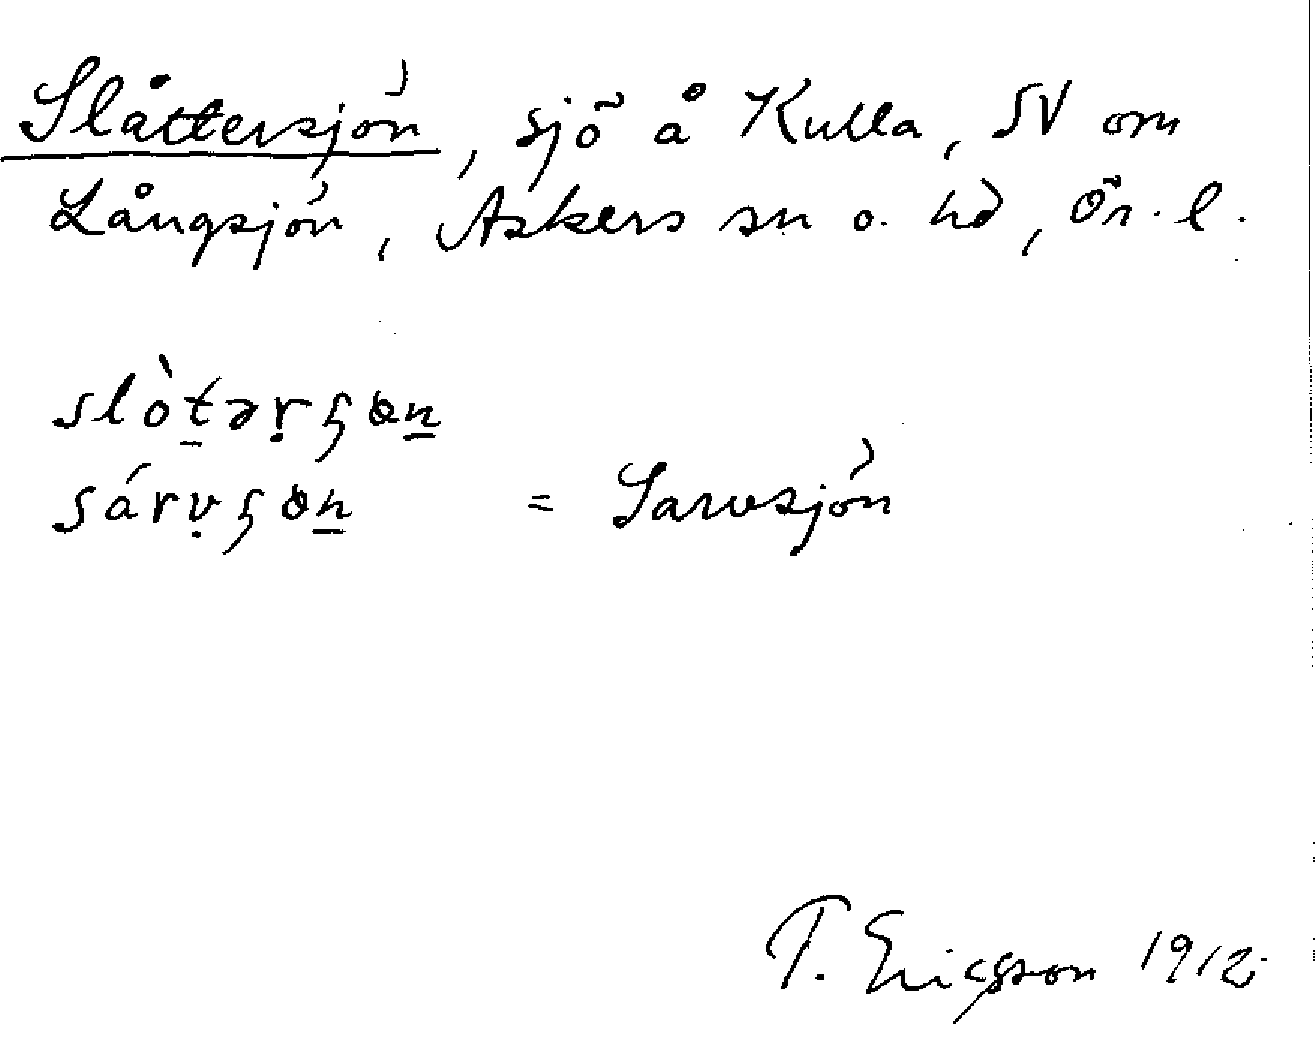 Slåttersjön, sjö å Kulla, SV om
Långsjön, Askers sn o. hd, Ör. l.
slòt̠əṛʂɵn̠
sárṿʂɵn̠ = Sarvsjön
T. Ericsson 1912